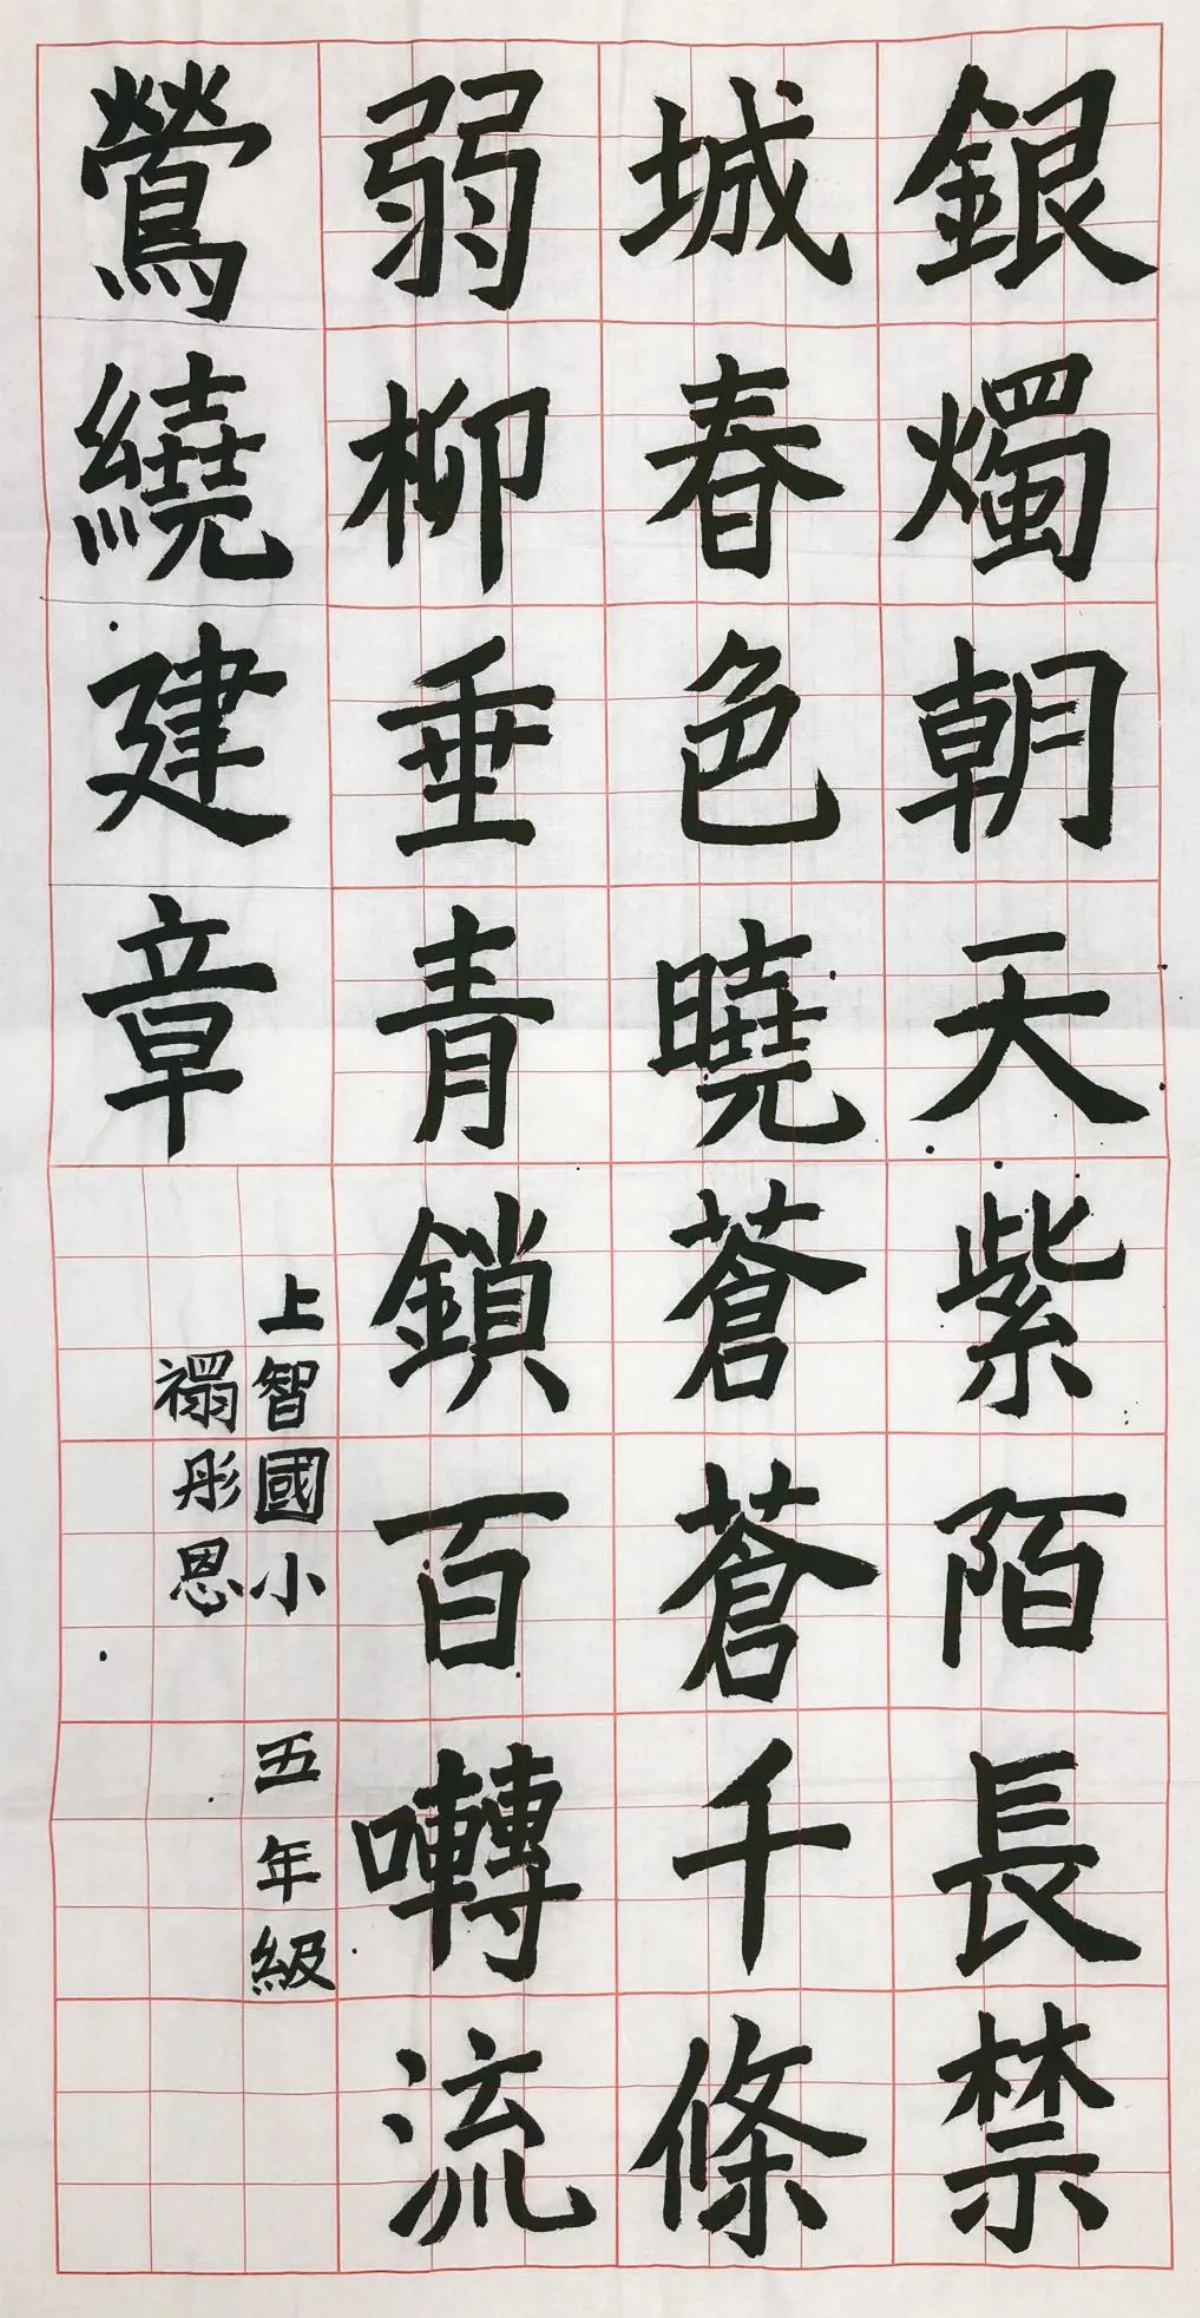 銀燭朝天紫陌長禁
城春色曉蒼蒼千條
弱柳垂青鎖百囀流
鶯繞建章
上智國小 五年級
禤彤恩